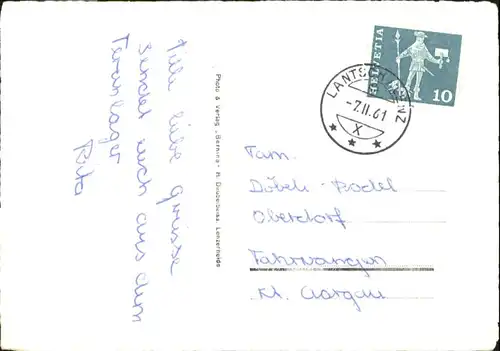 Viele liebe Grüsse
sendet euch aus dem
Rita
Photo & Verlag „Bernina" - Lenzerheide
HELVETIA
10
LANTSCH/LENZ
-7.II.61
X
Fam.
Döbeli-Bodel
Oberdorf
Fahrwangen
Kt. Aargau